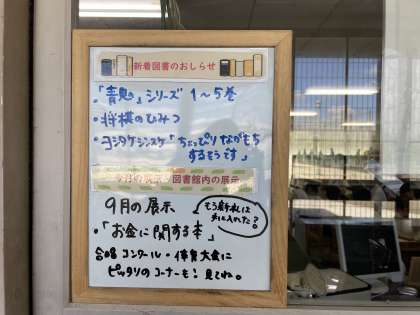 新着図書のおしらせ
・「青鬼」シリーズ 1〜5巻
・将棋のひみつ
・ヨシタケシンスケ「ちょっぴりながもち
するそうです」
今月の展示 図書館内の展示
9月の展示
もう新札は
手に入れた?
・「お金に関する本」
合唱コンクール・体育大会に
ピッタリのコーナーも!見てね。